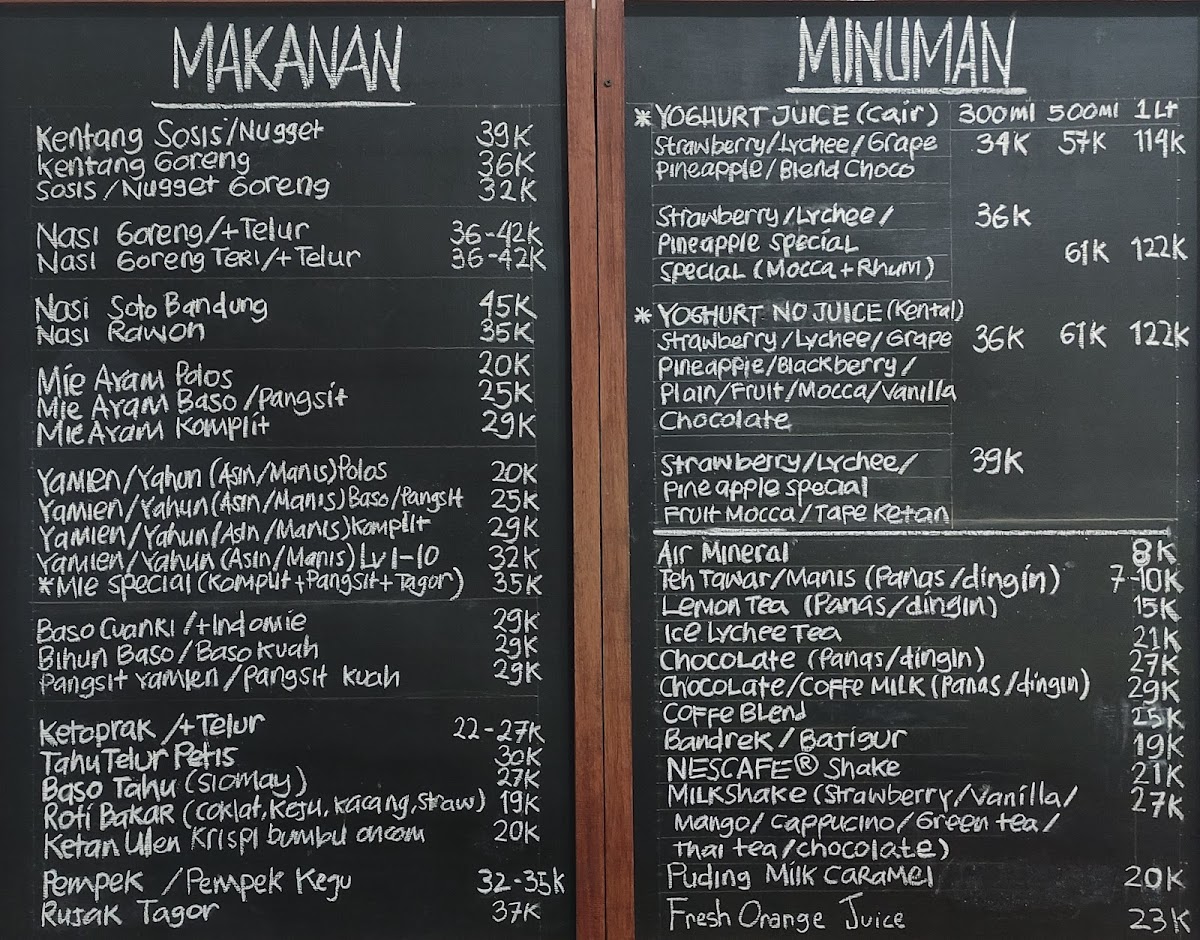 MAKANAN
Kentang Sosis/Nugget 39K
Kentang Goreng 36K
Sosis/Nugget Goreng 32K
Nasi Goreng/+Telur 36-42K
Nasi Goreng TERI/+Telur 36-42K
Nasi Soto Bandung 45K
Nasi Rawon 35K
Mie Ayam Polos 20K
Mie Ayam Baso/Pangsit 25K
Mie Ayam Komplit 29K
Yamien/Yahun (Asin/Manis) Polos 20K
Yamien/Yahun (Asin/Manis) Baso/Pangsit 25K
Yamien/Yahun (Asin/Manis) Komplit 29K
Yamien/Yahun (Asin/Manis) LV 1-10 32K
*Mie Special (Komplit+Pangsit+Tagor) 35K
Baso Cuanki/+Indomie 29K
Bihun Baso/Baso Kuah 29K
Pangsit Yamien/Pangsit kuah 29K
Ketoprak/+Telur 22-27K
Tahu Telur Petis 30K
Baso Tahu (Siomay) 27K
Roti Bakar (Coklat, Keju, Kacang, Straw) 19K
Ketan Ulen Krispi bumbu oncom 20K
Pempek /Pempek Keju 32-35K
Rujak Tagor 37K
MINUMAN
*YOGHURT JUICE (Cair) 300ml 500ml 1Lt
Strawberry/Lychee/Grape 34K 57K 114K
Pineapple/Blend Choco
Strawberry/Lychee/ 36K
Pineapple Special 61K 122K
Special (Mocca+Rhum)
*YOGHURT NO JUICE (Kental)
Strawberry/Lychee/Grape 36K 61K 122K
Pineapple/Blackberry/
Plain/Fruit/Mocca/Vanilla
Chocolate
Strawberry/Lychee/ 39K
Pineapple Special
Fruit Mocca/Tape Ketan
Air Mineral 8K
Teh Tawar/Manis (Panas/dingin) 7-10K
Lemon Tea (Panas/dingin) 15K
Ice Lychee Tea 21K
Chocolate (Panas/dingin) 27K
Chocolate/Coffe Milk (Panas/dingin) 29K
Coffe Blend 25K
Bandrek/Bajigur 19K
NESCAFE® Shake 21K
Milkshake (Strawberry/Vanilla/ 27K
Mango/Cappucino/Green tea/
Thai tea/chocolate)
Puding Milk Caramel 20K
Fresh Orange Juice 23K